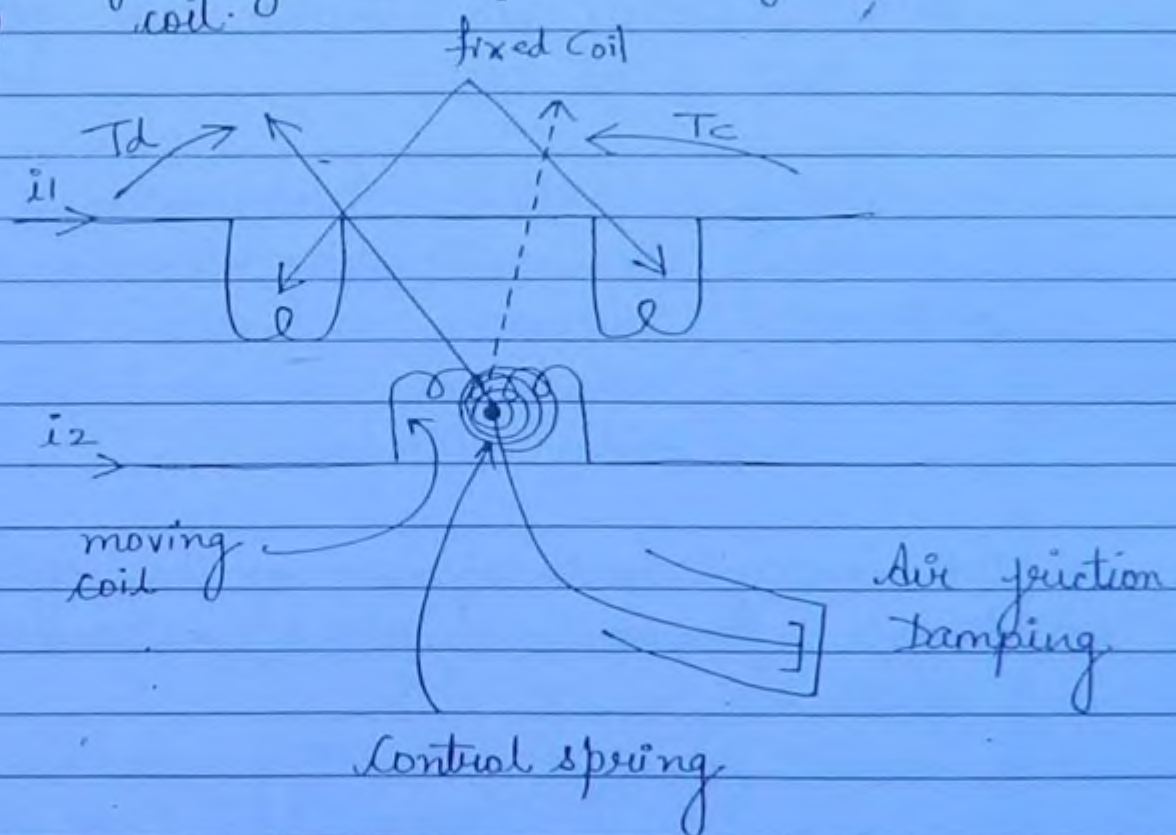 coil.
fixed Coil
Td
Tc
i1
i2
moving
coil
Air friction
Damping
Control spring